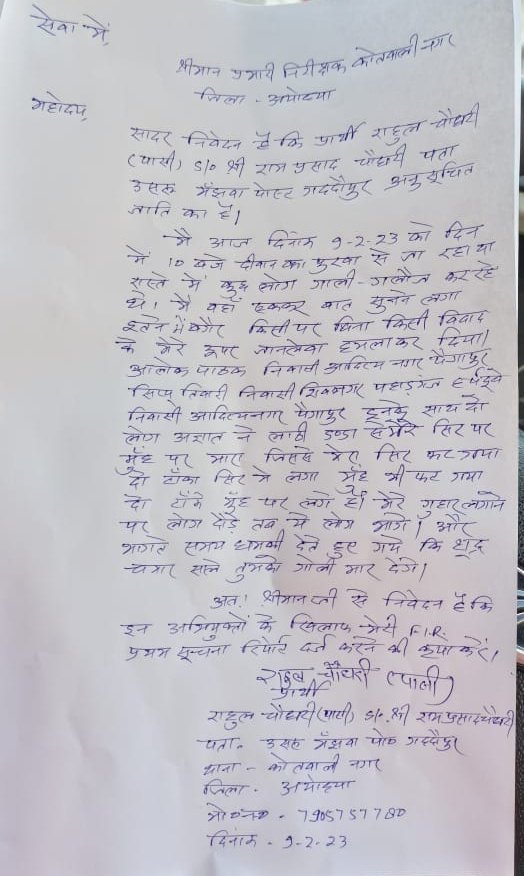 सेवा में,
श्रीमान प्रभारी निरीक्षक कोतवाली नगर
जिला - अयोध्या
महोदय,
सादर निवेदन है कि प्रार्थी राहुल चौधरी
(पासी) S/o श्री राम प्रसाद चौधरी पता
उसरू मँझवा पोस्ट गददौपुर अनुसूचित
जाति का है।
मै आज दिनांक 9-2-23 को दिन
में 10 बजे दीवान का पुरवा से जा रहा था
रास्ते में कुछ लोग गाली-गलौज कर रहे
थे। मै वहाँ रुककर बात सुनने लगा
इतने में बगैर किसी पर बिना किसी विवाद
के मेरे ऊपर जानलेवा हमला कर दिया।
आलोक पाठक निवासी आदित्य नगर पैगापुर
तिवारी निवासी शिवनगर पहाड़गंज हर्ष दूबे
निवासी आदित्यनगर पैगापुर इनके साथ दो
लोग अज्ञात ने लाठी डण्डा से मेरे सिर पर
मुँह पर मारा जिससे मेरा सिर फट गया
दो टाँका सिर में लगा मुँह भी फट गया
दो टाँके मुँह पर लगे हैं। मेरे गुहार लगाने
पर लोग दौड़े तब ये लोग भागे। और
भागते समय धमकी देते हुए गये कि शूद्र
चमार साले तुमको गोली मार देंगे।
अतः श्रीमान जी से निवेदन है कि
इन अभियुक्तों के खिलाफ मेरी F.I.R.
प्रथम सूचना रिपोर्ट दर्ज करने की कृपा करें।
राहुल चौधरी (पासी)
प्रार्थी
राहुल चौधरी (पासी) S/o. श्री रामप्रसाद चौधरी
पता - उसरू मँझवा पो० गददौपुर
थाना - कोतवाली नगर
जिला - अयोध्या
मो०न० - 7905757780
दिनांक - 9-2-23